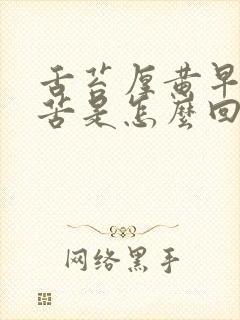 舌苔厚黄早
苦是怎麼回
网络黑手